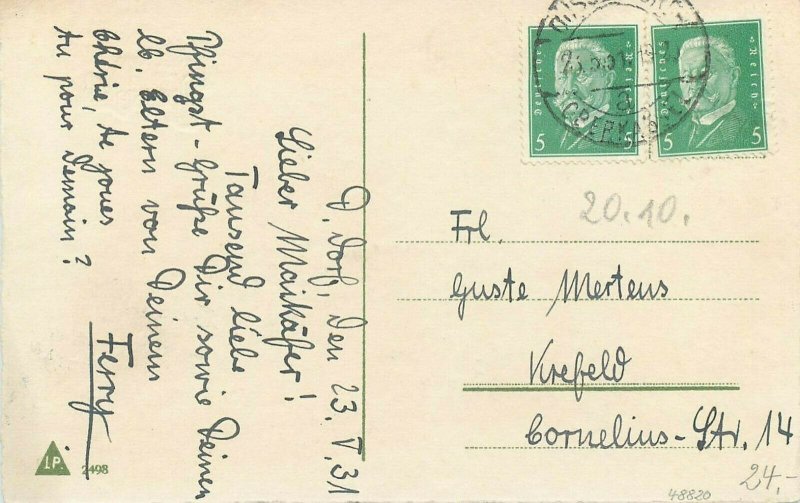 D.dorf, den 23. V. 31
Lieber Maikäfer!
Tausend liebe
Pfingst-Grüße Dir sowie Deinen
lb. Eltern von Deinem
Ferry
Chérie, tu joues
tu pour demain?
I.P.
2498
Deutsches Reich
5
5
Deutsches Reich
5
5
23.5.31
20.10.
Frl.
Guste Mertens
Krefeld
Cornelius-Str. 14
24,-
48820